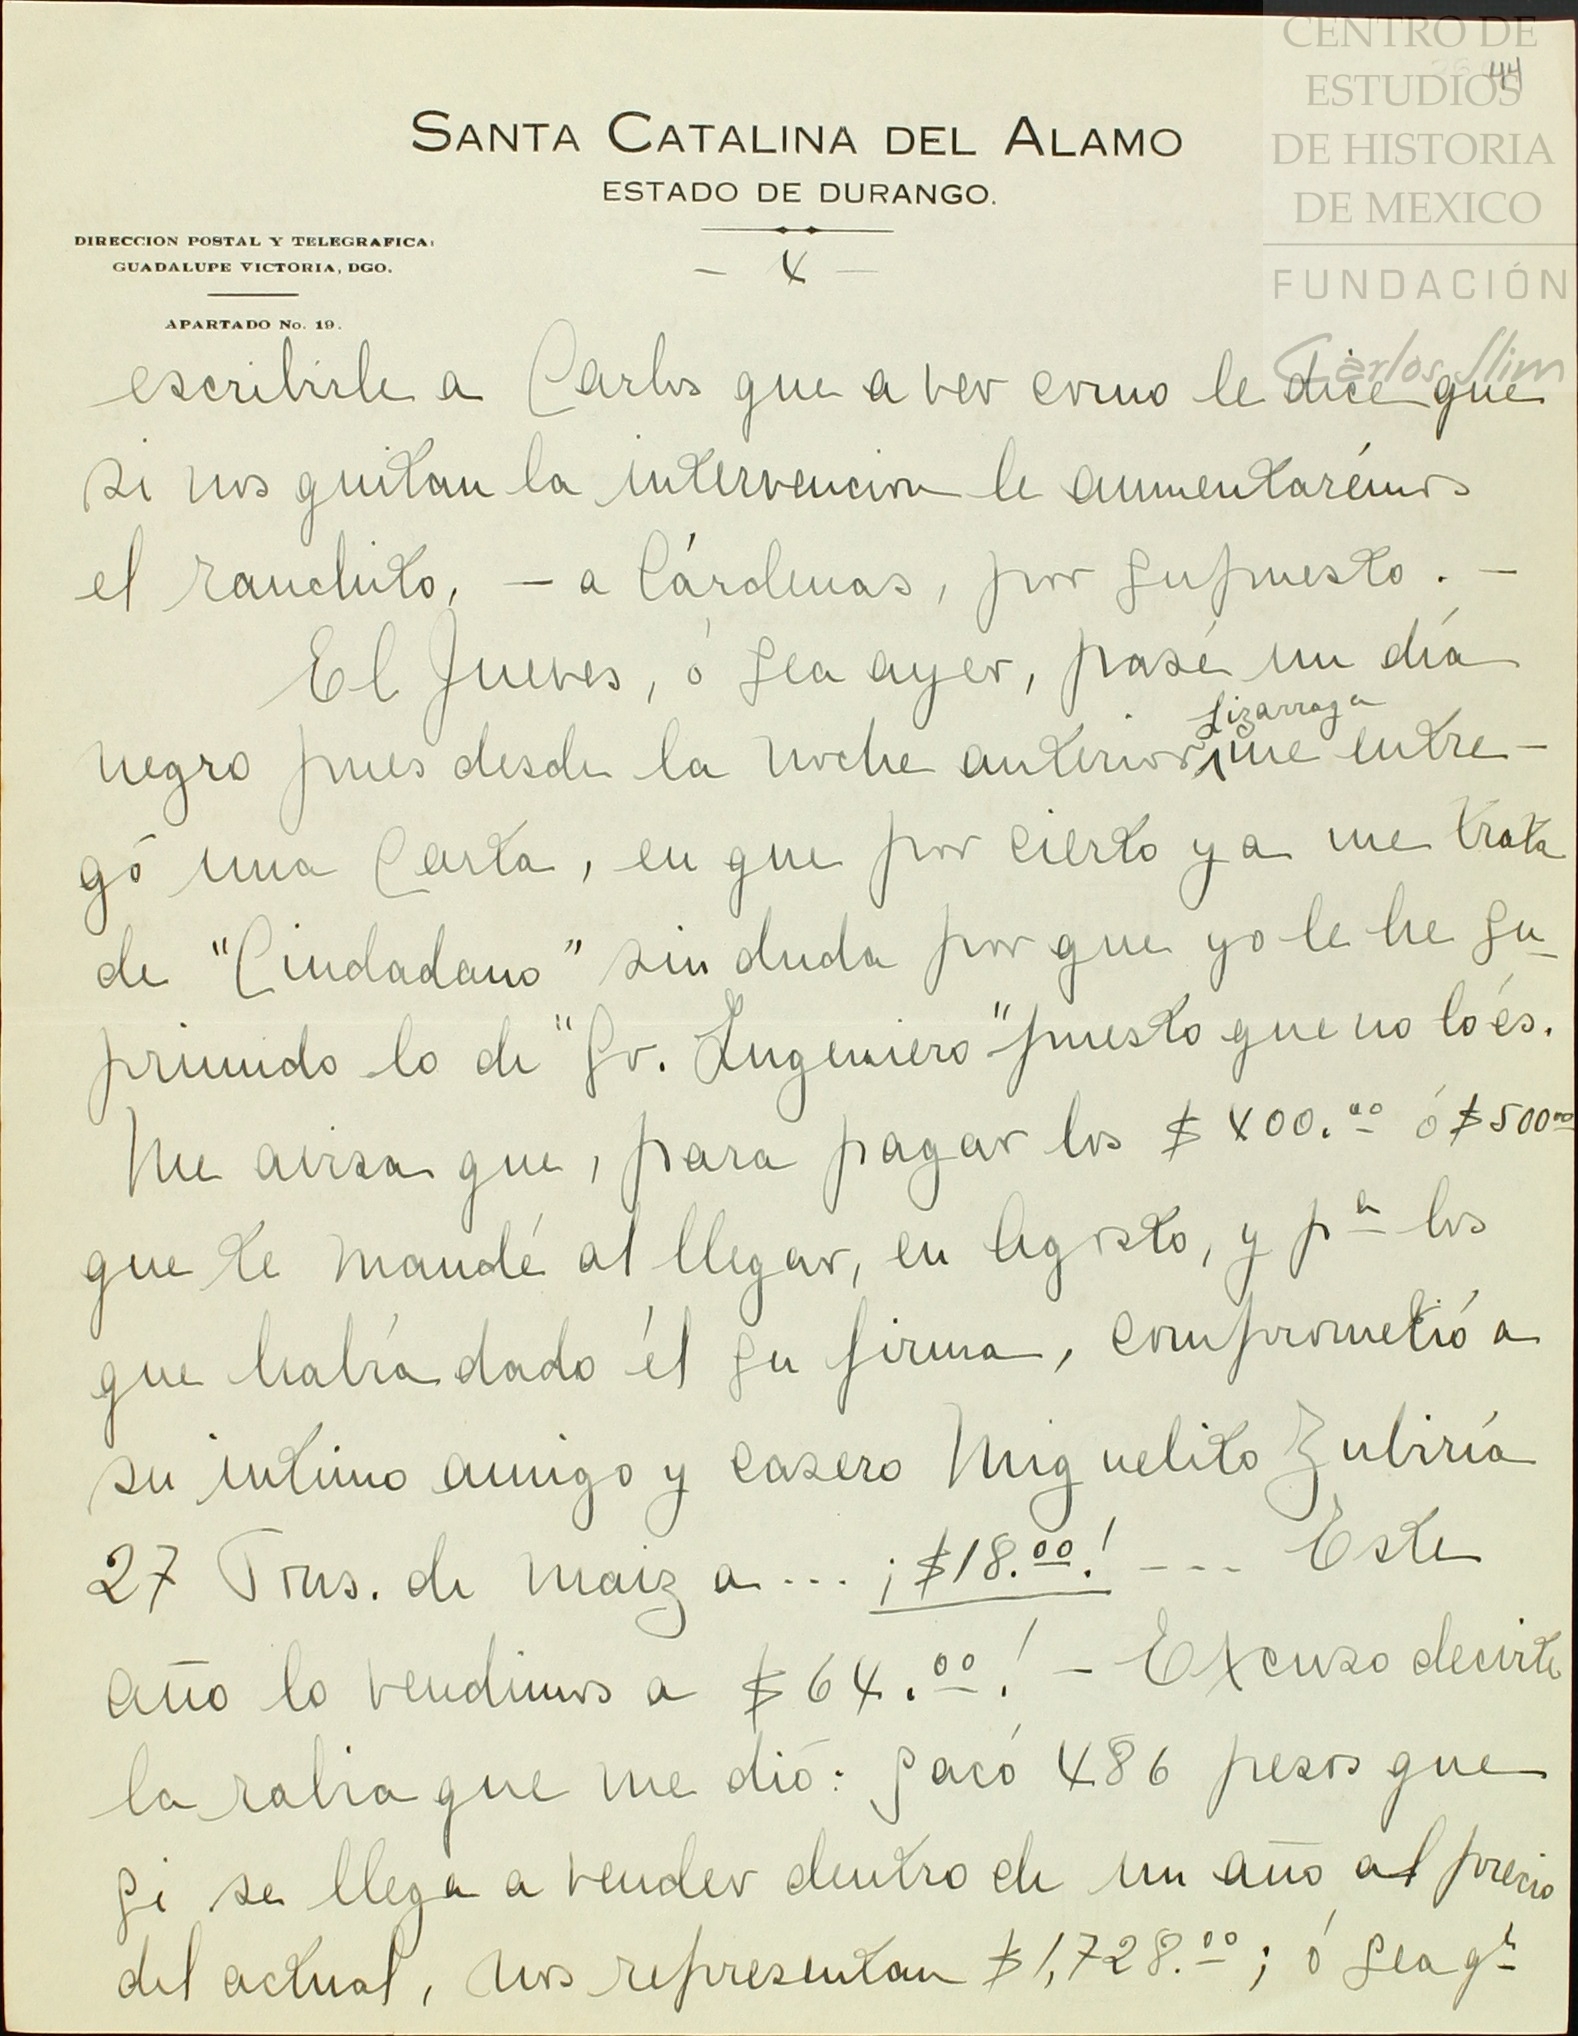 CENTRO DE
ESTUDIOS
DE HISTORIA
DE MEXICO
FUNDACIÓN
Carlos Slim
44
SANTA CATALINA DEL ALAMO
ESTADO DE DURANGO.
DIRECCION POSTAL Y TELEGRAFICA:
GUADALUPE VICTORIA, DGO.
APARTADO No. 19.
- 4 -
escribirle a Carlos que a ver como le dice que
si nos quitan la intervencion le aumentarémos
el ranchito, - a Cárdenas, por supuesto. -
El Jueves, ó sea ayer, pasé un día
negro pues desde la noche anterior, Lizarraga me entre-
gó una Carta, en que por cierto ya me trata
de "Ciudadano" sin duda por que yo le he su-
primido lo de "Sr. Ingeniero" puesto que no lo és.
Me avisa que, para pagar los $400.00 ó $500.00
que te mandé al llegar, en Agosto, y pª los
que había dado él su firma, comprometió a
su intimo amigo y casero Miguelito Zubiría
27 Tns. de maiz a... ¡$18.00! --- Este
año lo vendimos a $64.00! - Excuso decirte
la rabia que me dió: sacó 486 pesos que
si se llega a vender dentro de un año al precio
del actual, nos representan $1,728.00; ó sea qe